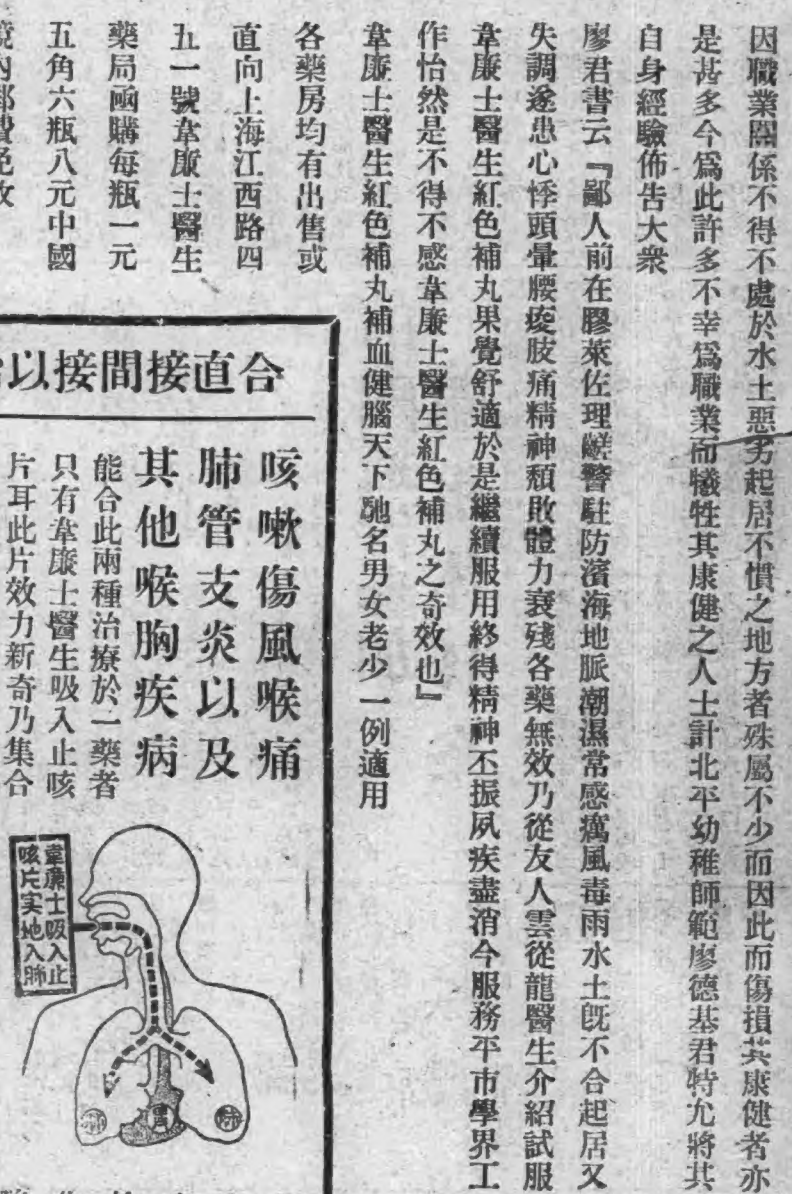 因職業關係不得不處於水土惡劣起居不慣之地方者殊屬不少而因此而傷損其康健者亦
是甚多今爲此許多不幸爲職業而犧牲其康健之人士計北平幼稚師範廖德基君特允將其
自身經驗佈告大衆
廖君書云『鄙人前在膠萊佐理鹺警駐防濱海地脈潮濕常感癘風毒雨水土旣不合起居又
失調遂患心悸頭暈腰痠肢痛精神頹敗體力衰殘各藥無效乃從友人雲從龍醫生介紹試服
韋廉士醫生紅色補丸果覺舒適於是繼續服用終得精神丕振夙疾盡消今服務平市學界工
作怡然是不得不感韋廉士醫生紅色補丸之奇效也』
韋廉士醫生紅色補丸補血健腦天下馳名男女老少一例適用
各藥房均有出售或
直向上海江西路四
五一號韋廉士醫生
藥局函購每瓶一元
五角六瓶八元中國
境內郵費免收
合直接間接以
咳嗽傷風喉痛
肺管支炎以及
其他喉胸疾病
能合此兩種治療於一藥者
只有韋廉士醫生吸入止咳
片耳此片效力新奇乃集合
韋廉士吸入止
咳片实地入肺
肺
胃
肺